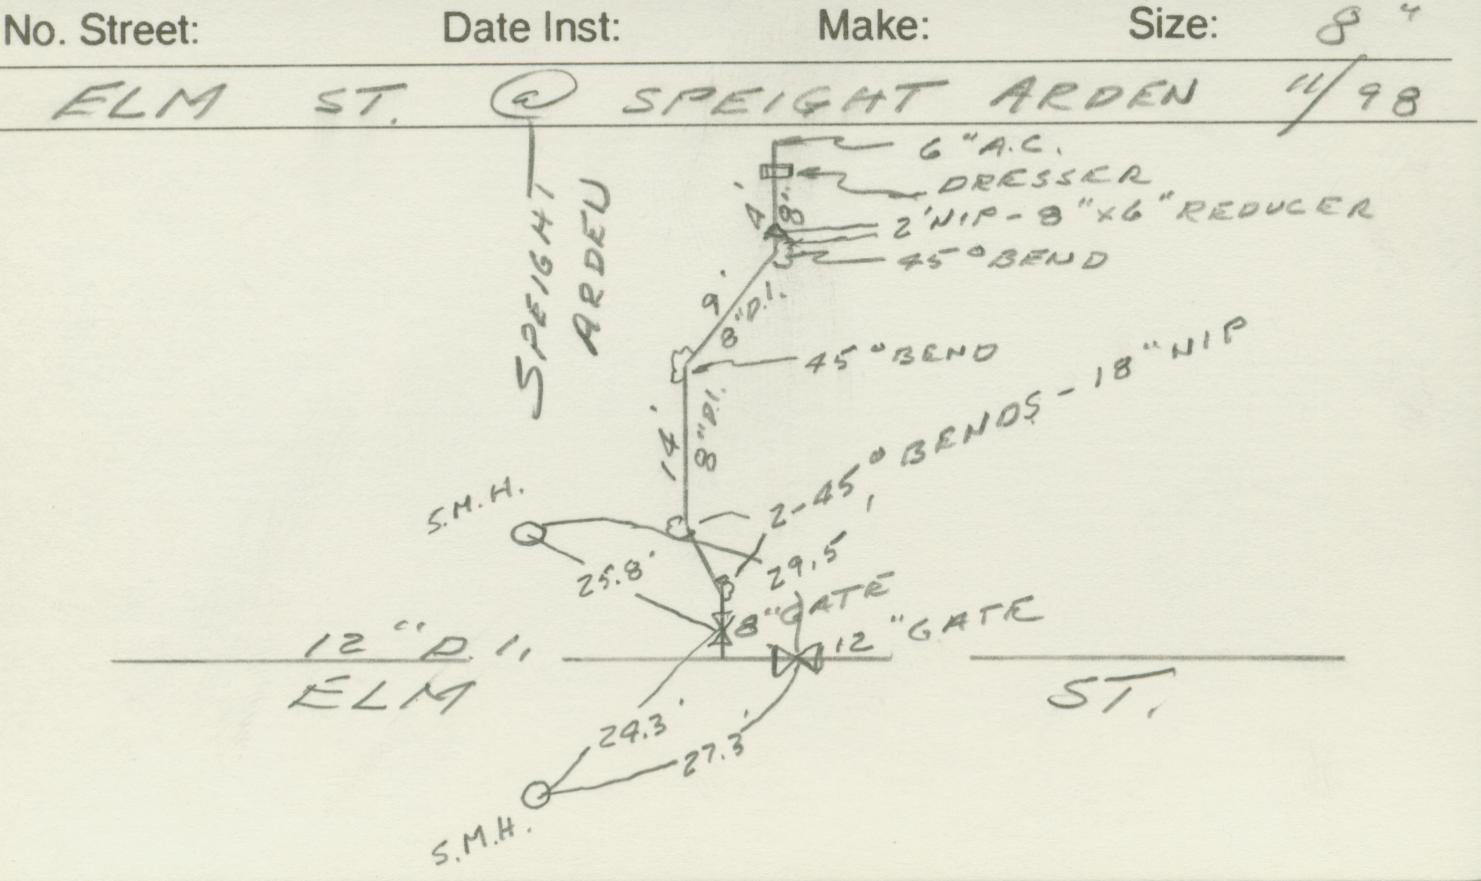 No. Street: Date Inst: Make: Size: 8"
ELM ST. @ SPEIGHT ARDEN 11/98
6" A.C.
DRESSER
4' 8"
2' NIP - 8" x 6" REDUCER
45° BEND
SPEIGHT
ARDEN
9'
8" D.I.
45° BEND
14'
8" D.I.
2-45° BENDS - 18" NIP
S.M.H.
25.8'
29.5'
8" GATE
12" GATE
12" D.I.
ELM ST.
24.3'
27.3'
S.M.H.